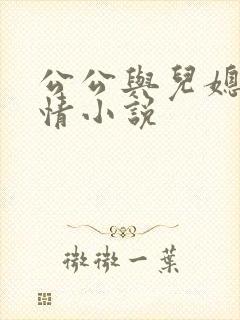 公公與兒媳
情小說
微微一葉